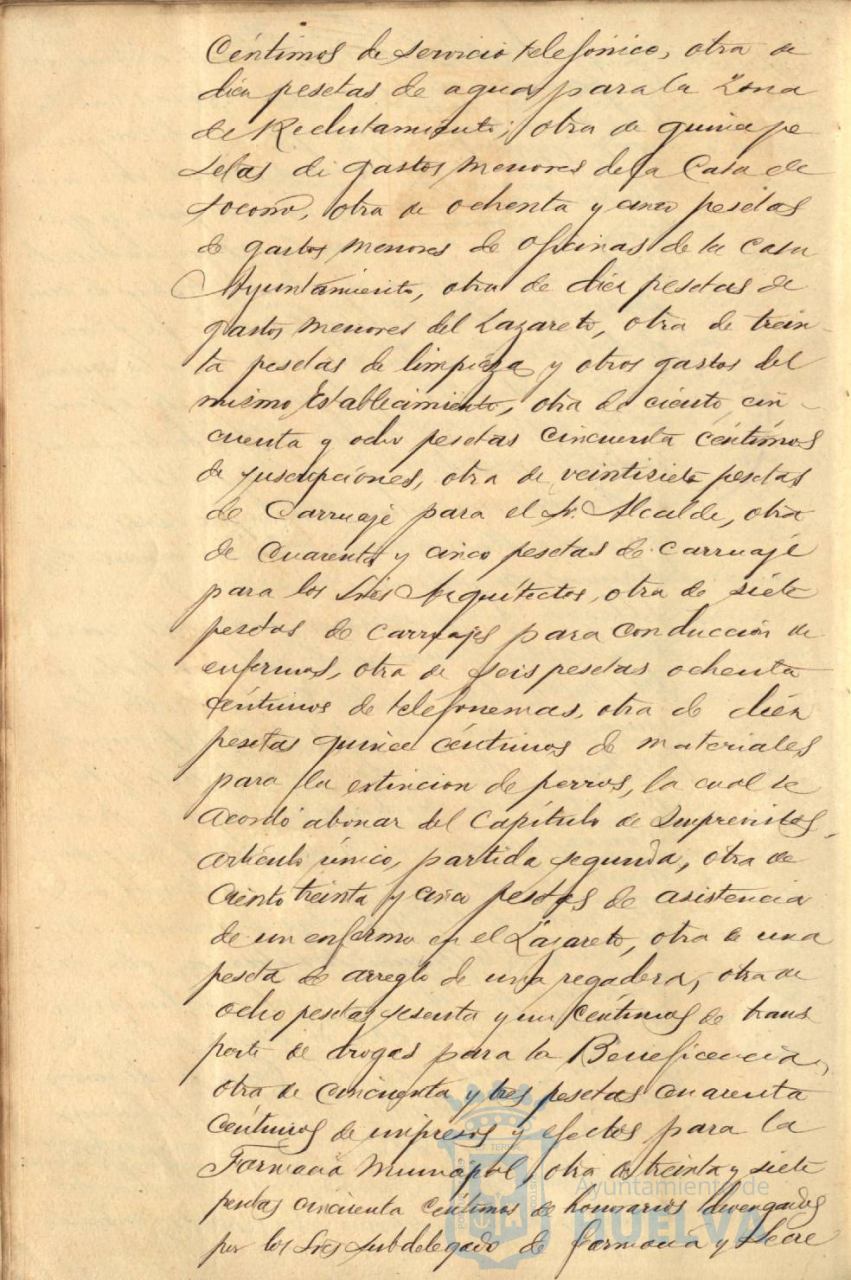 Céntimos de servicio telefónico, otra de
diez pesetas de agua para la Zona
de Reclutamiento; otra de quince pe
setas de gastos menores de la Casa de
Socorro, otra de ochenta y cinco pesetas
de gastos menores de oficinas de la Casa
Ayuntamiento, otra de diez pesetas de
gastos menores del Lazareto, otra de trein-
ta pesetas de limpieza y otros gastos del
mismo Establecimiento, otra de ciento cin-
cuenta y ocho pesetas cincuenta céntimos
de suscripciones, otra de veintisiete pesetas
de Carruaje para el Sr. Alcalde, otra
de Cuarenta y cinco pesetas de carruaje
para los Sres Arquitectos, otra de siete
pesetas de carruajes para conducción de
enfermos, otra de seis pesetas ochenta
céntimos de telefonemas, otra de diez
pesetas quince céntimos de materiales
para la extincion de perros, la cual se
acordó abonar del Capítulo de Imprevistos,
artículo único, partida segunda, otra de
Ciento treinta y cinco pesetas de asistencia
de un enfermo en el Lazareto, otra de una
peseta de arreglo de una regadera, otra de
ocho pesetas sesenta y un céntimos de trans
porte de drogas para la Beneficencia,
otra de cincuenta y tres pesetas cuarenta
céntimos de impresos y efectos para la
Farmacia Municipal, otra de treinta y siete
pesetas cincuenta céntimos de honorarios devengados
por los Sres Subdelegado de Farmacia y Secre
Ayuntamiento de
HUELVA